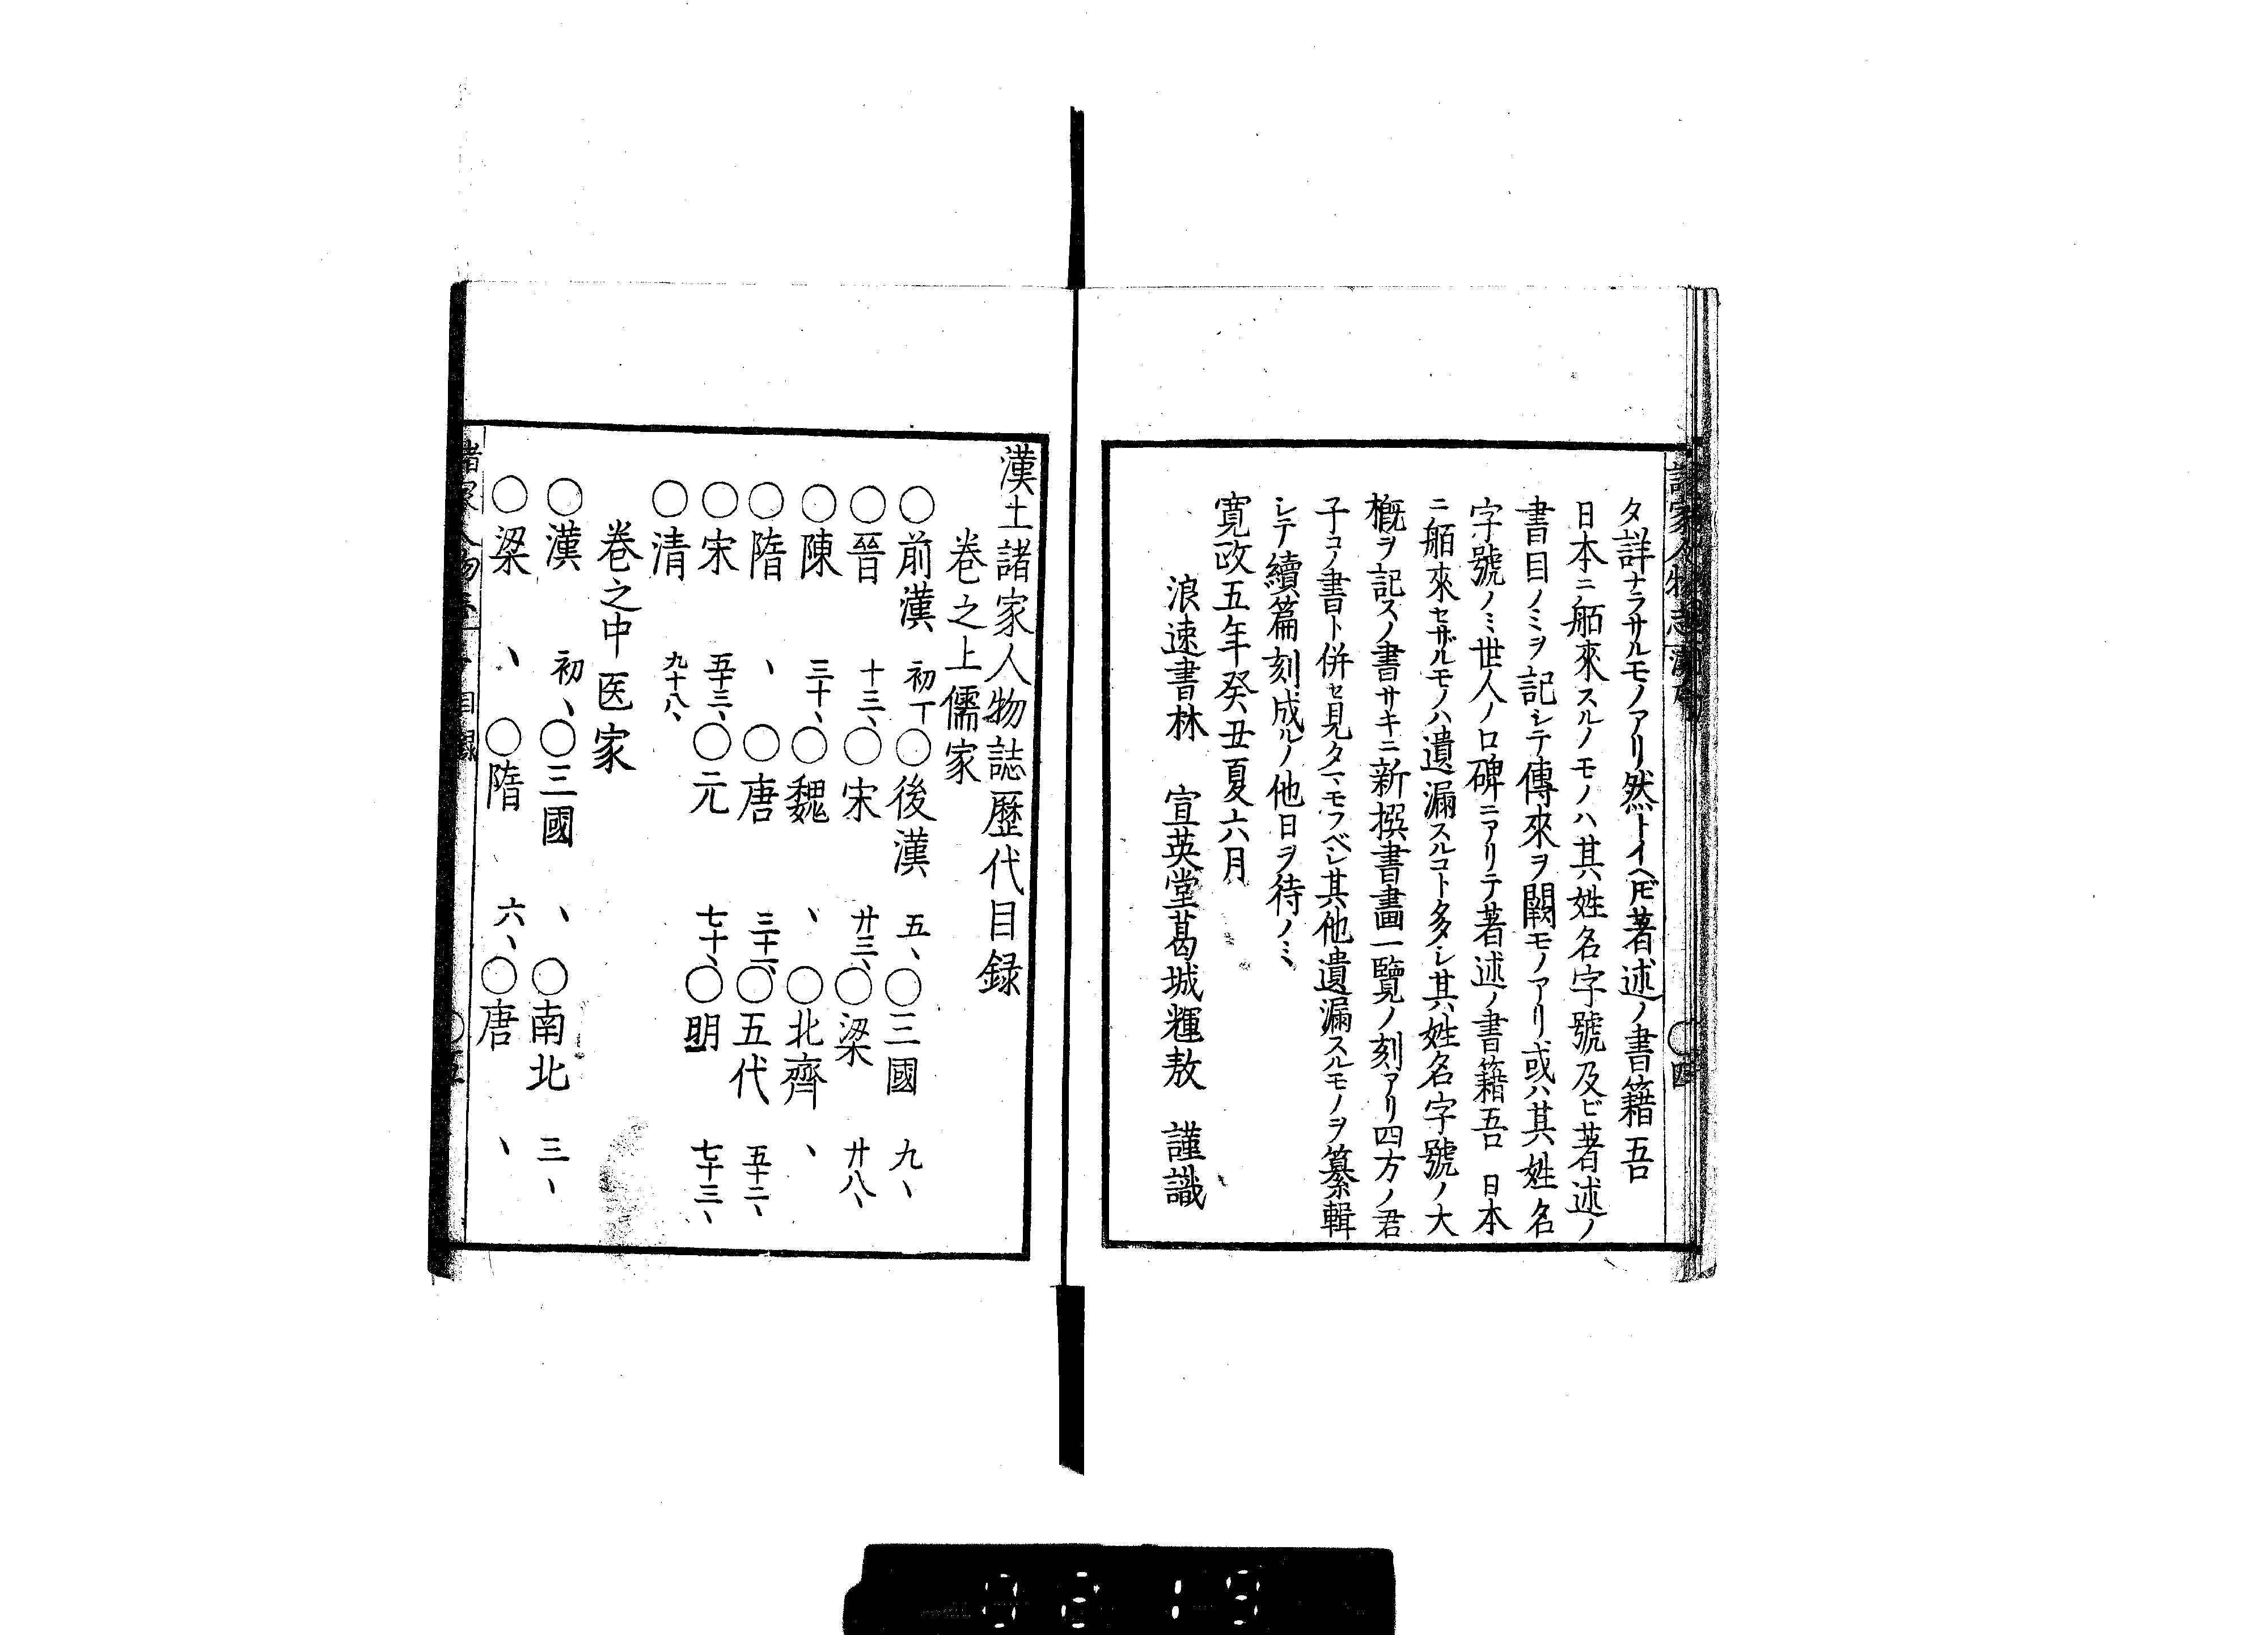 タ詳ナラサルモノアリ然トイヘ𪜈著述ノ書籍吾
日本ニ舶來スルノモノハ其姓名字號及ビ著述ノ
書目ノミヲ記シテ傳來ヲ闕モノアリ或ハ其姓名
字號ノミ世人ノ口碑ニアリテ著述ノ書籍吾 日本
ニ舶來セザルモノハ遺漏スルコト多シ其姓名字號ノ大
概ヲ記スノ書サキニ新撰書畫一覽ノ刻アリ四方ノ君
子コノ書ト併セ見タマモフベシ其他遺漏スルモノヲ纂輯
シテ續篇刻成ルノ他日ヲ待ノミ
寛政五年癸丑夏六月
浪速書林 宣英堂葛城輝敖 謹識
漢土諸家人物誌歷代目録
卷之上儒家
○前漢 初丁○後漢 五、○三國 九、
○晉 十三、○宋 廿三、○梁 廿八、
○陳 三十、○魏 、○北齊 、
○隋 、○唐 三十一、○五代 五十二、
○宋 五十三、○元 七十、○明 七十三、
○清 九十八、
卷之中医家
○漢 初、○三國 、○南北 三、
○梁 、○隋 六、○唐 、